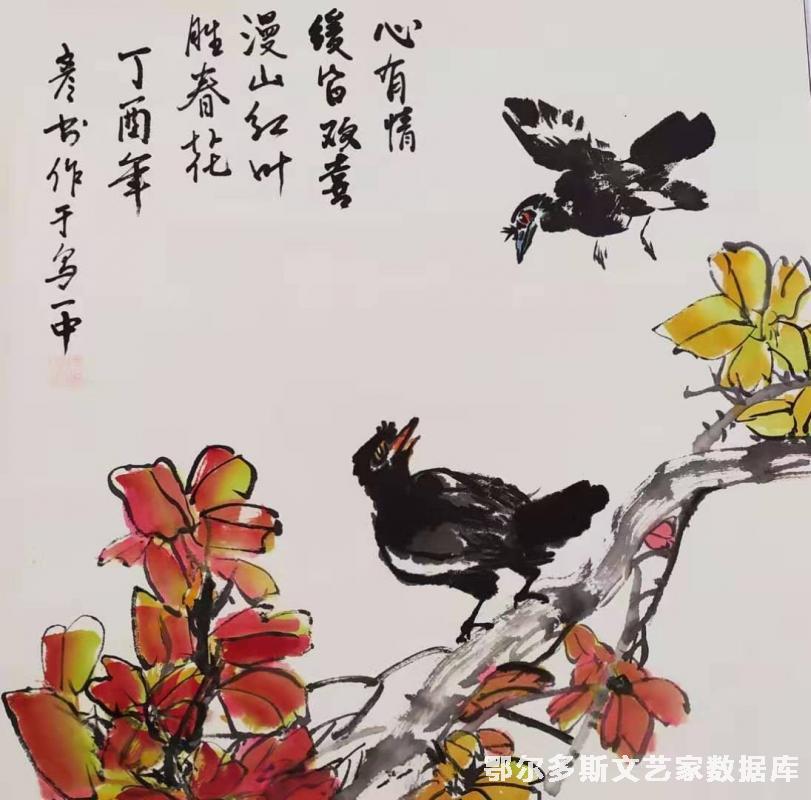 心有情
缓皆改喜
漫山红叶
胜春花
丁酉年
彦书作于乌一中
鄂尔多斯文艺家数据库